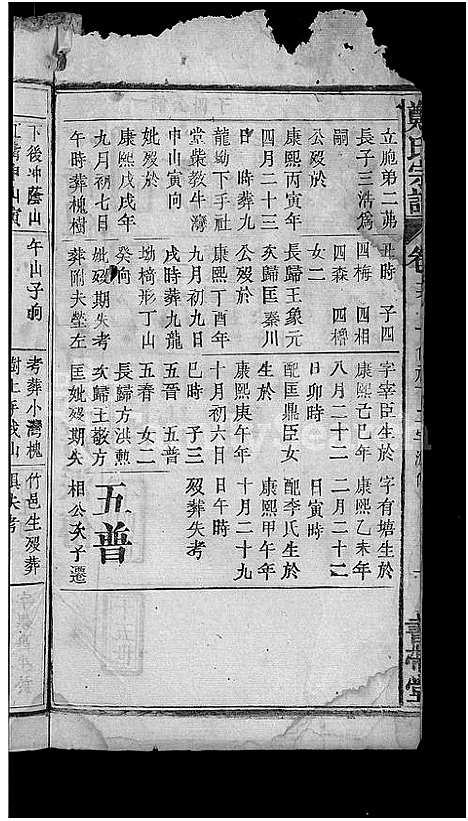 鄭氏宗譜
書帶堂
立胞弟二茀
長子三浩爲
嗣
公歿於
康熙丙寅年
四月二十三
日時葬九
龍坳下手社
堂柴教牛灣
申山寅向
妣歿於
康熙戊戌年
九月初七日
午時葬槐樹
丑時 子四
四梅 四相
四森 四檉
女二
長歸王象元
次歸匡秦川
公歿於
康熙丁酉年
九月初九日
戌時葬九龍
坳椅形丁山
癸向
妣歿期失考
葬附夫塋左
字宰臣生於
康熙己巳年
八月二十二
日卯時
配匡鼎臣女
生於
康熙庚午年
十月初六日
巳時 子三
五晉 五普
五春 女二
長歸方洪勲
次歸王敬方
匡妣歿期失
字有塘生於
康熙乙未年
二月二十二
日寅時
配李氏生於
康熙甲午年
十月二十九
日午時
歿葬失考
五普
相公次子遷
下後冲蔭山
午山子向
考葬小灣槐
竹邑生歿葬
俱失考